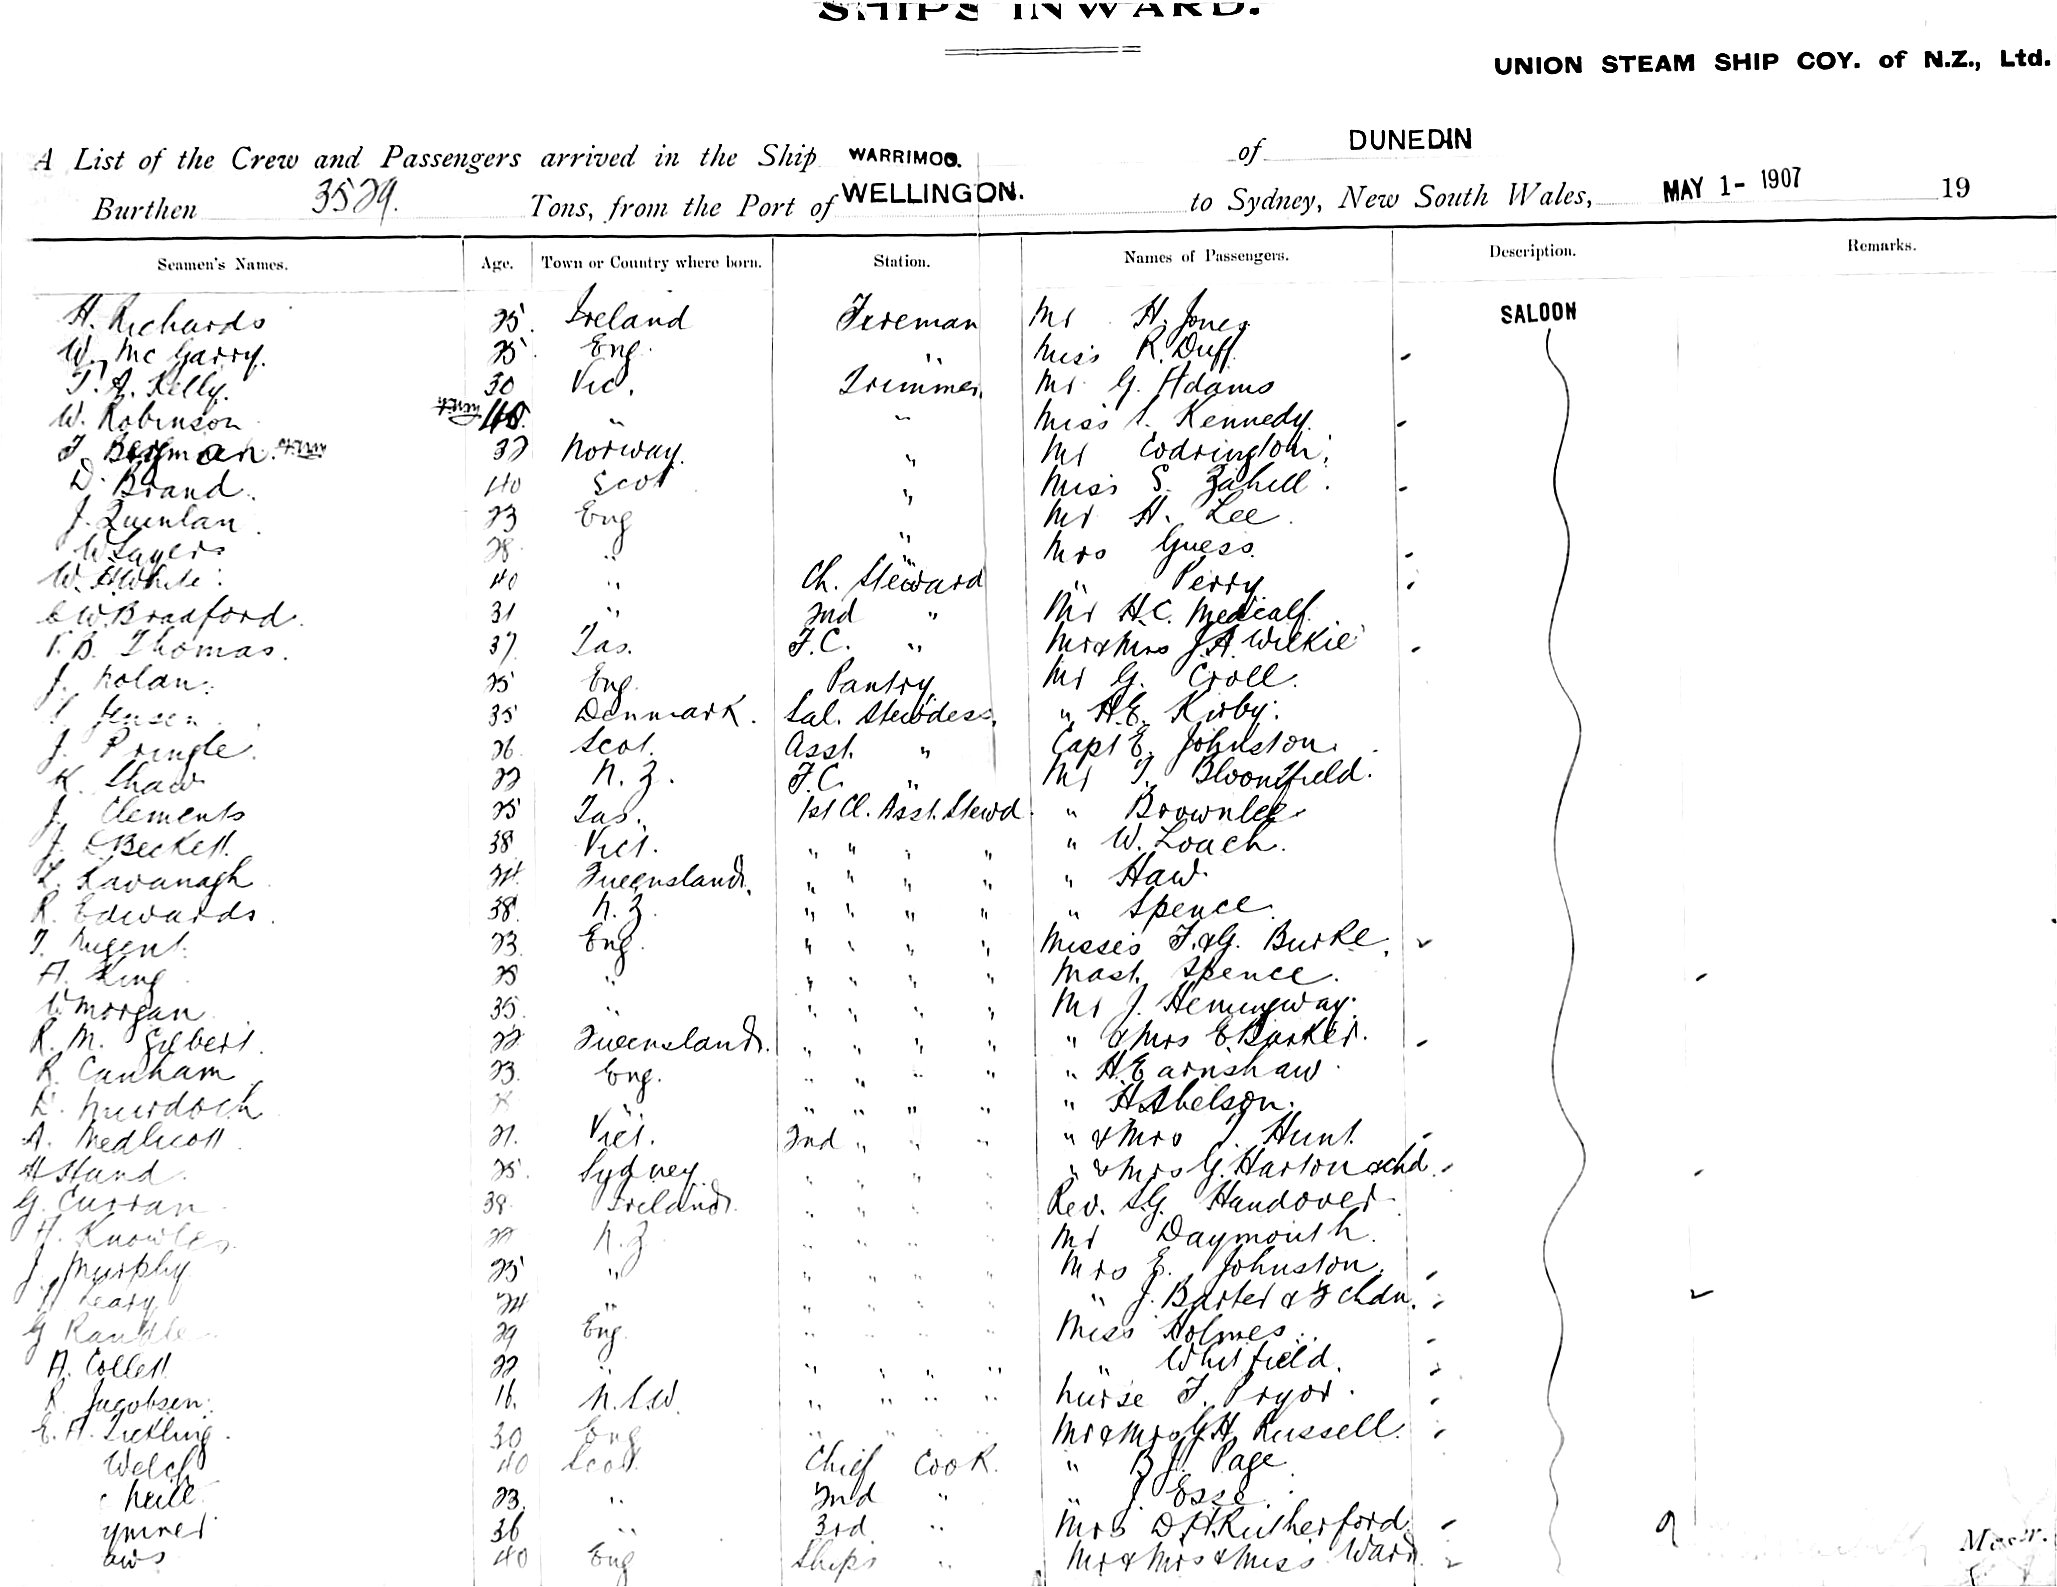 SHIPS INWARD.
UNION STEAM SHIP COY. of N.Z., Ltd.
A List of the Crew and Passengers arrived in the Ship WARRIMOO. of DUNEDIN
Burthen 3529. Tons, from the Port of WELLINGON. to Sydney, New South Wales, MAY 1- 1907 19
Seamen's Names. Age. Town or Country where born. Station. Names of Passengers. Description. Remarks.
H. Richards 25 Ireland Fireman Mr H. Jones SALOON
W. McGarry. 25 Eng. " Miss R. Duff.
T. A. Kelly. 30 Vic. Trimmer. Mr G. Adams
W. Robinson 40. " " Miss Kennedy.
T. Bergman. 32 Norway. " Mr Codrington.
D. Brand. 40 Scot " Miss S. Zahell.
J. Quinlan 23 Eng " Mr H. Lee.
W Sayers 28 " " Mrs Guess.
W. H White. 40 " Ch. Steward " Perry
C W. Bradford. 31 " 2nd " Mr H. C. Medcalf.
B. Thomas. 37 Tas. F.C. " Mr & Mrs J. A. Wilkie
J. Nolan. 25 Eng. Pantry. Mr G. Croll.
Jensen. 35 Denmark. Sal. Stewdess. " H.E. Kirby.
J. Pringle. 26 Scot. Asst. " Capt E. Johnston.
K. Shaw 22 N.Z. F.C. " Mr T. Bloomfield.
J. Clements 25 Tas. 1st Cl. Asst. Stewd. " Brownlee
J. Beckett. 38 Vict. " " " " " W. Loach.
L. Kavanagh 24 Queensland. " " " " " Haw.
R. Edwards. 38 N.Z. " " " " " Spence.
T. Nugent. 23. Eng. " " " " Misses F. & G. Burke.
A. King 25 " " " " " Mast. Spence.
Morgan 35. " " " " " Mr J. Hemingway.
R. M. Gilbert. 22 Queensland. " " " " " & Mrs E Barker.
R. Canham 23. Eng. " " " " " H. Earnshaw.
D. Murdoch " " " " " " H Abelson.
A. Medlicott 21. Vict. 2nd " " " " & Mrs T. Hunt.
H Hand. 25. Sydney " " " " " & Mrs G. Harton & chd.
G. Curran 38. Ireland. " " " " Rev. S.G. Handover
H. Knowles. 22 N.Z " " " " Mr Daymouth.
J. Murphy 25 " " " " " Mrs E. Johnston.
Leary 24 " " " " " " J. Barter & 3 chdn.
G Randle 29 Eng. " " " " Miss Holmes.
A. Collett 22 " " " " " " Whitfield.
R. Jacobsen. 16. N.S.W. " " " " Nurse F. Pryor.
E. A. Tickling. 30 Eng " " " " Mr & Mrs G. H. Russell.
Welch 40 Scot. Chief Cook. " B. J. Page
Neill 23. " 2nd " " J. Esse.
36 " 3rd " Mrs D. H. Rutherford.
aws 40 Eng Ships " Mr & Mrs & Miss Ward.
Master.